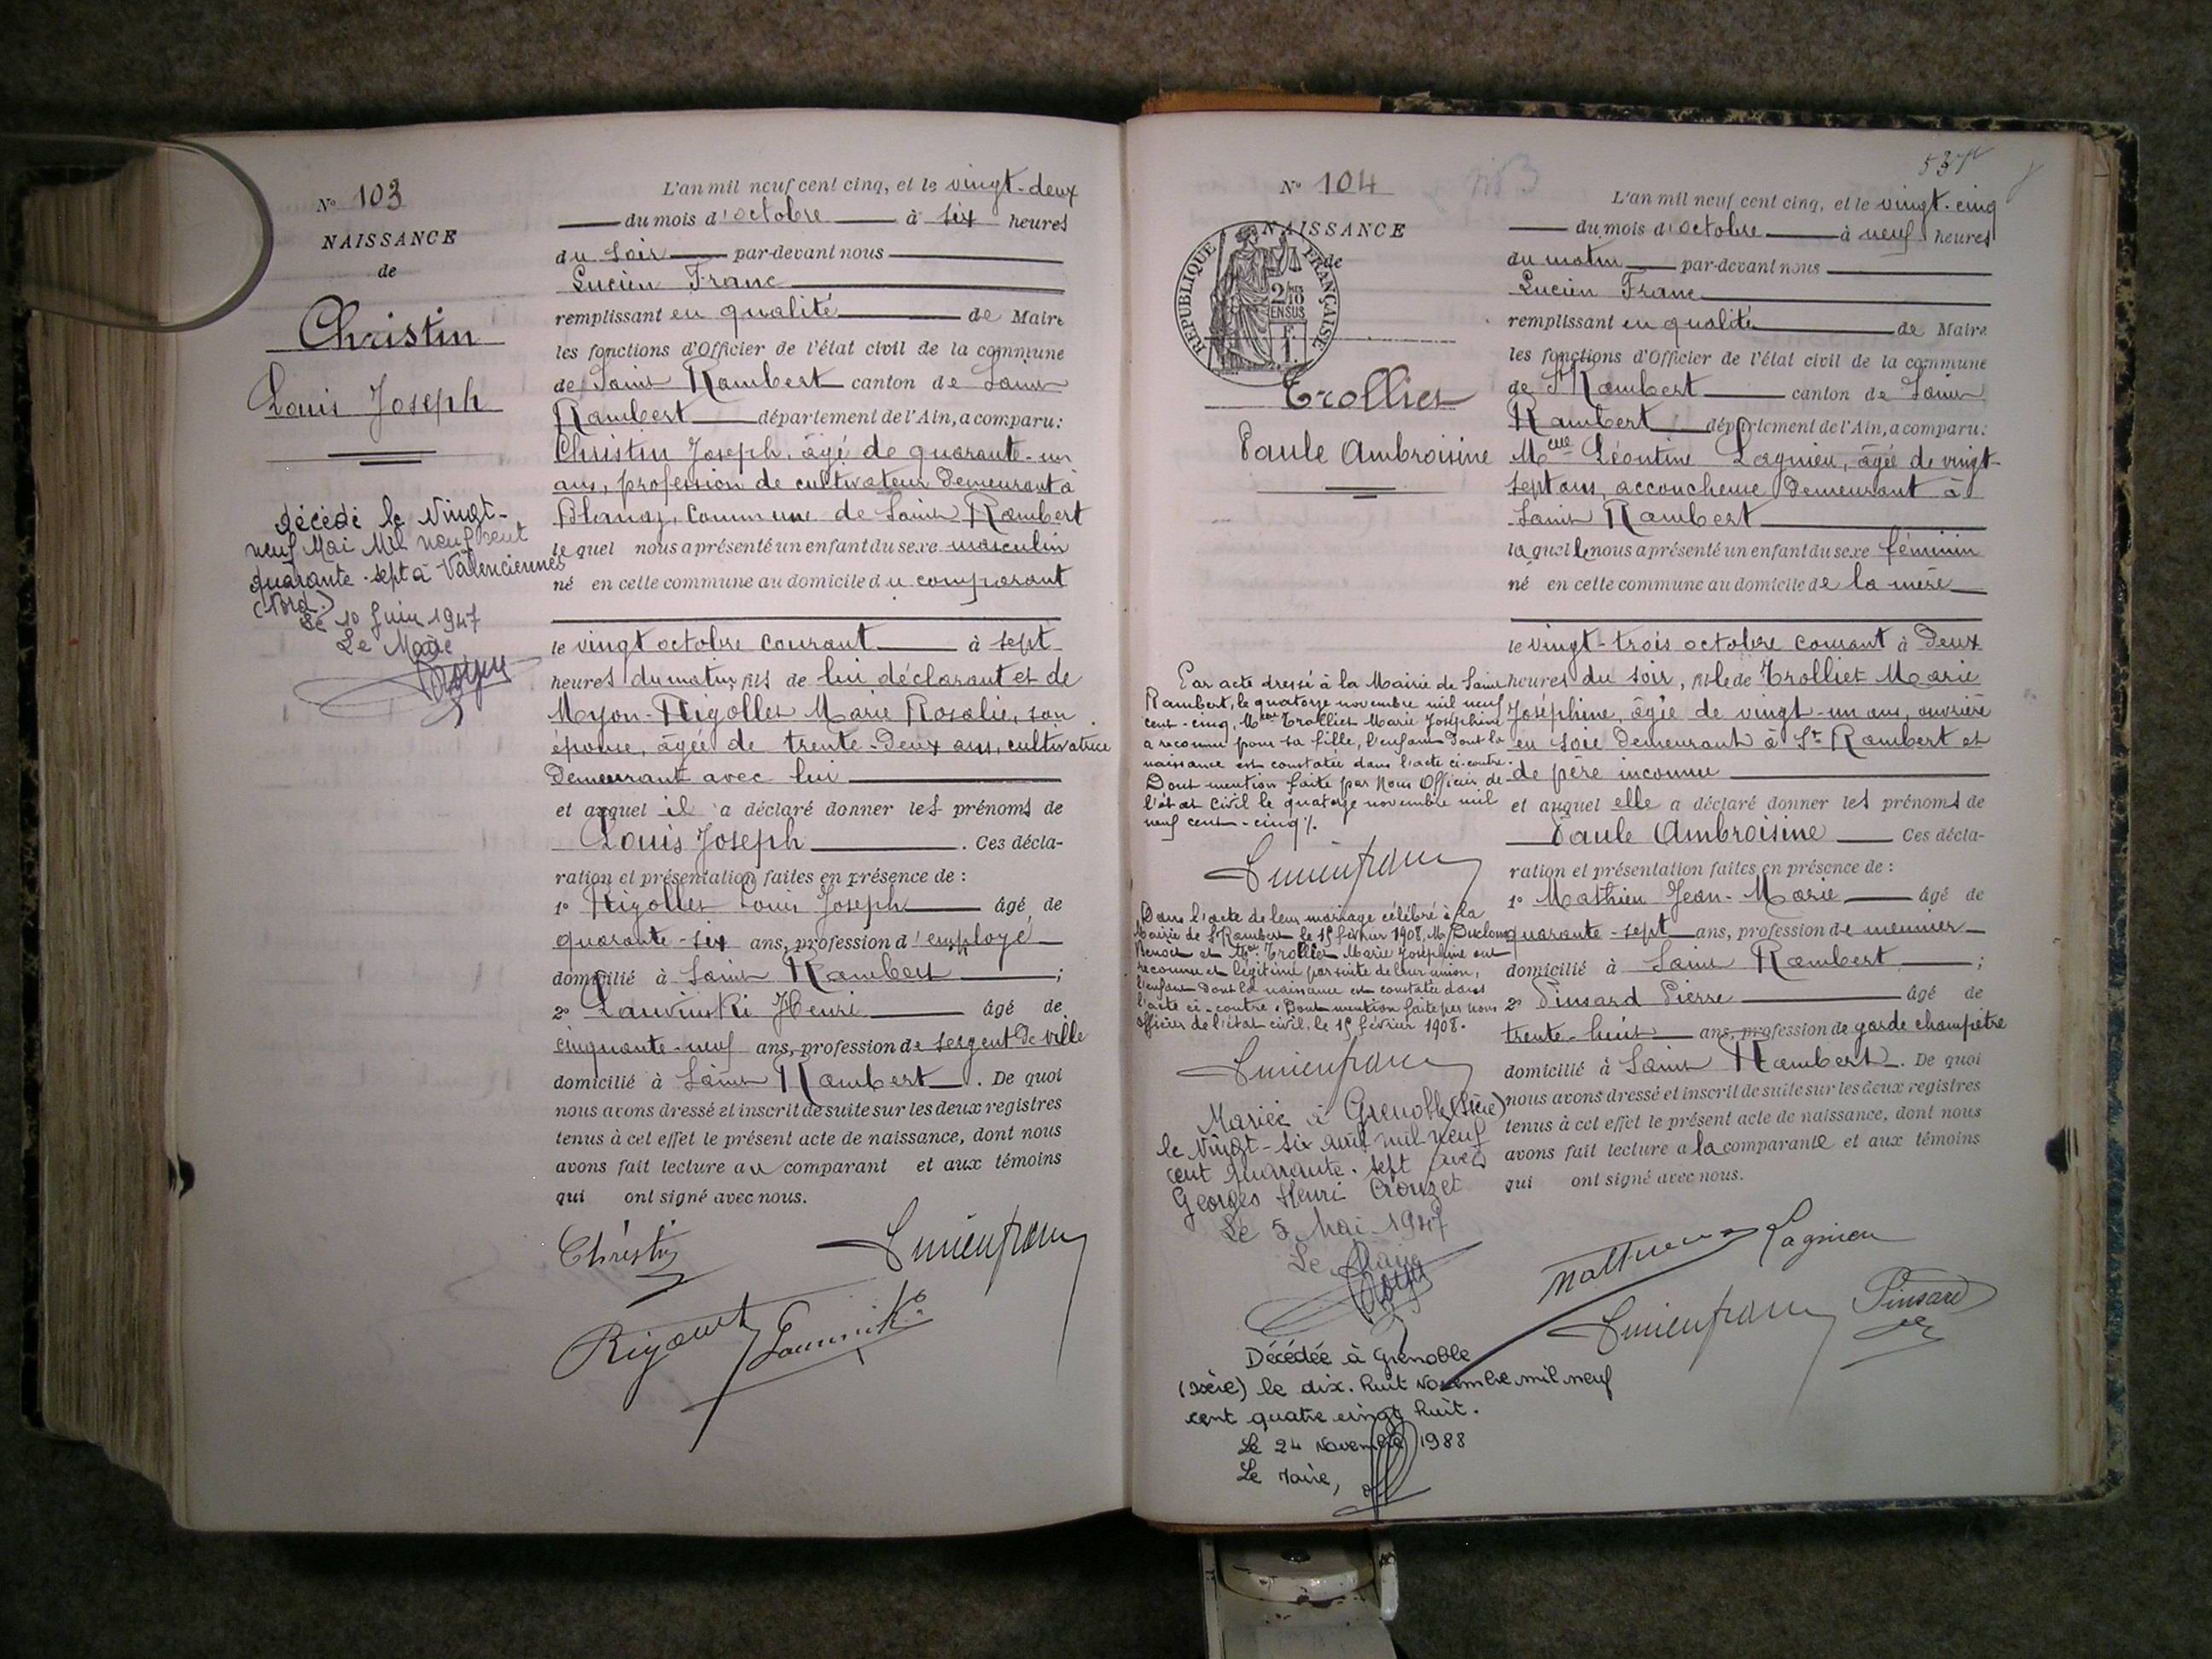 N° 103
NAISSANCE
de
Christin
Louis Joseph
Décédé le Vingt-
neuf Mai Mil neuf cent
quarante-sept à Valenciennes
(Nord)
Le 10 Juin 1947
Le Maire
L'an mil neuf cent cinq, et le vingt-deux
du mois d'octobre à six heures
du soir par-devant nous
Lucien Franc
remplissant en qualité de Maire
les fonctions d'Officier de l'état civil de la commune
de Saint Rambert canton de Saint
Rambert département de l'Ain, a comparu:
Christin Joseph, âgé de quarante-un
ans, profession de cultivateur demeurant à
Blanaz, commune de Saint Rambert
lequel nous a présenté un enfant du sexe masculin
né en cette commune au domicile du comparant
le vingt octobre courant à sept
heures du matin, fils de lui déclarant et de
Myon-Rigollet Marie Rosalie, son
épouse, âgée de trente-deux ans, cultivatrice
demeurant avec lui
et auquel il a déclaré donner les prénoms de
Louis Joseph. Ces décla-
ration et présentation faites en présence de :
1° Rigollet Louis Joseph âgé de
quarante-six ans, profession d'employé
domicilié à Saint Rambert ;
2° Henri âgé de
cinquante-neuf ans, profession de sergent de ville
domicilié à Saint Rambert. De quoi
nous avons dressé et inscrit de suite sur les deux registres
tenus à cet effet le présent acte de naissance, dont nous
avons fait lecture au comparant et aux témoins
qui ont signé avec nous.
Christin Lucien franc
537
N° 104
NAISSANCE
de
RÉPUBLIQUE FRANÇAISE
2/10
EN SUS
Trolliet
Paule Ambroisine
Par acte dressé à la Mairie de Saint
Rambert, le quatorze novembre mil neuf
cent-cinq, Trolliet Marie Joséphine
a reconnu pour sa fille, l'enfant dont la
naissance est constatée dans l'acte ci-contre.
Dont mention faite par Nous Officier de
l'état civil le quatorze novembre mil
neuf cent-cinq.
Lucien franc
Dans l'acte de leur mariage célébré à la
Mairie de St Rambert le 15 février 1908, M.
Benoit et Trolliet Marie Joséphine ont
reconnu et légitimé par suite de leur union,
l'enfant dont la naissance est constatée dans
l'acte ci-contre. Dont mention faite par nous
officier de l'état civil, le 15 février 1908.
Lucien franc
Mariée à Grenoble (Isère)
le Vingt-six avril mil neuf
cent quarante-sept avec
Georges Henri Crouzet
Le 5 Mai 1947
Le Maire
Décédée à Grenoble
(Isère) le dix-huit Novembre mil neuf
cent quatre vingt huit.
Le 24 Novembre 1988
Le Maire,
L'an mil neuf cent cinq, et le vingt-cinq
du mois d'octobre à neuf heures
du matin par-devant nous
Lucien Franc
remplissant en qualité de Maire
les fonctions d'Officier de l'état civil de la commune
de St Rambert canton de Saint
Rambert département de l'Ain, a comparu:
Mme Léontine Lagnieu, âgée de vingt-
sept ans, accoucheuse demeurant à
Saint Rambert
laquelle nous a présenté un enfant du sexe féminin
né en cette commune au domicile de la mère
le vingt-trois octobre courant à deux
heures du soir, fille de Trolliet Marie
Joséphine, âgée de vingt-un ans, ouvrière
en soie demeurant à St Rambert et
de père inconnu
et auquel elle a déclaré donner les prénoms de
Paule Ambroisine Ces décla-
ration et présentation faites en présence de :
1° Mathieu Jean-Marie âgé de
quarante-sept ans, profession de meunier
domicilié à Saint Rambert ;
2° Pinsard Pierre âgé de
trente-huit ans, profession de garde champêtre
domicilié à Saint Rambert. De quoi
nous avons dressé et inscrit de suite sur les deux registres
tenus à cet effet le présent acte de naissance, dont nous
avons fait lecture a la comparante et aux témoins
qui ont signé avec nous.
Mathieu Lagnieu
Lucien franc Pinsard